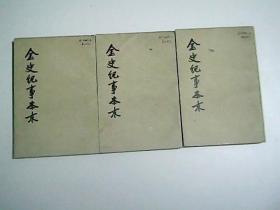 金史纪事本末
金史纪事本末
金史纪事本末